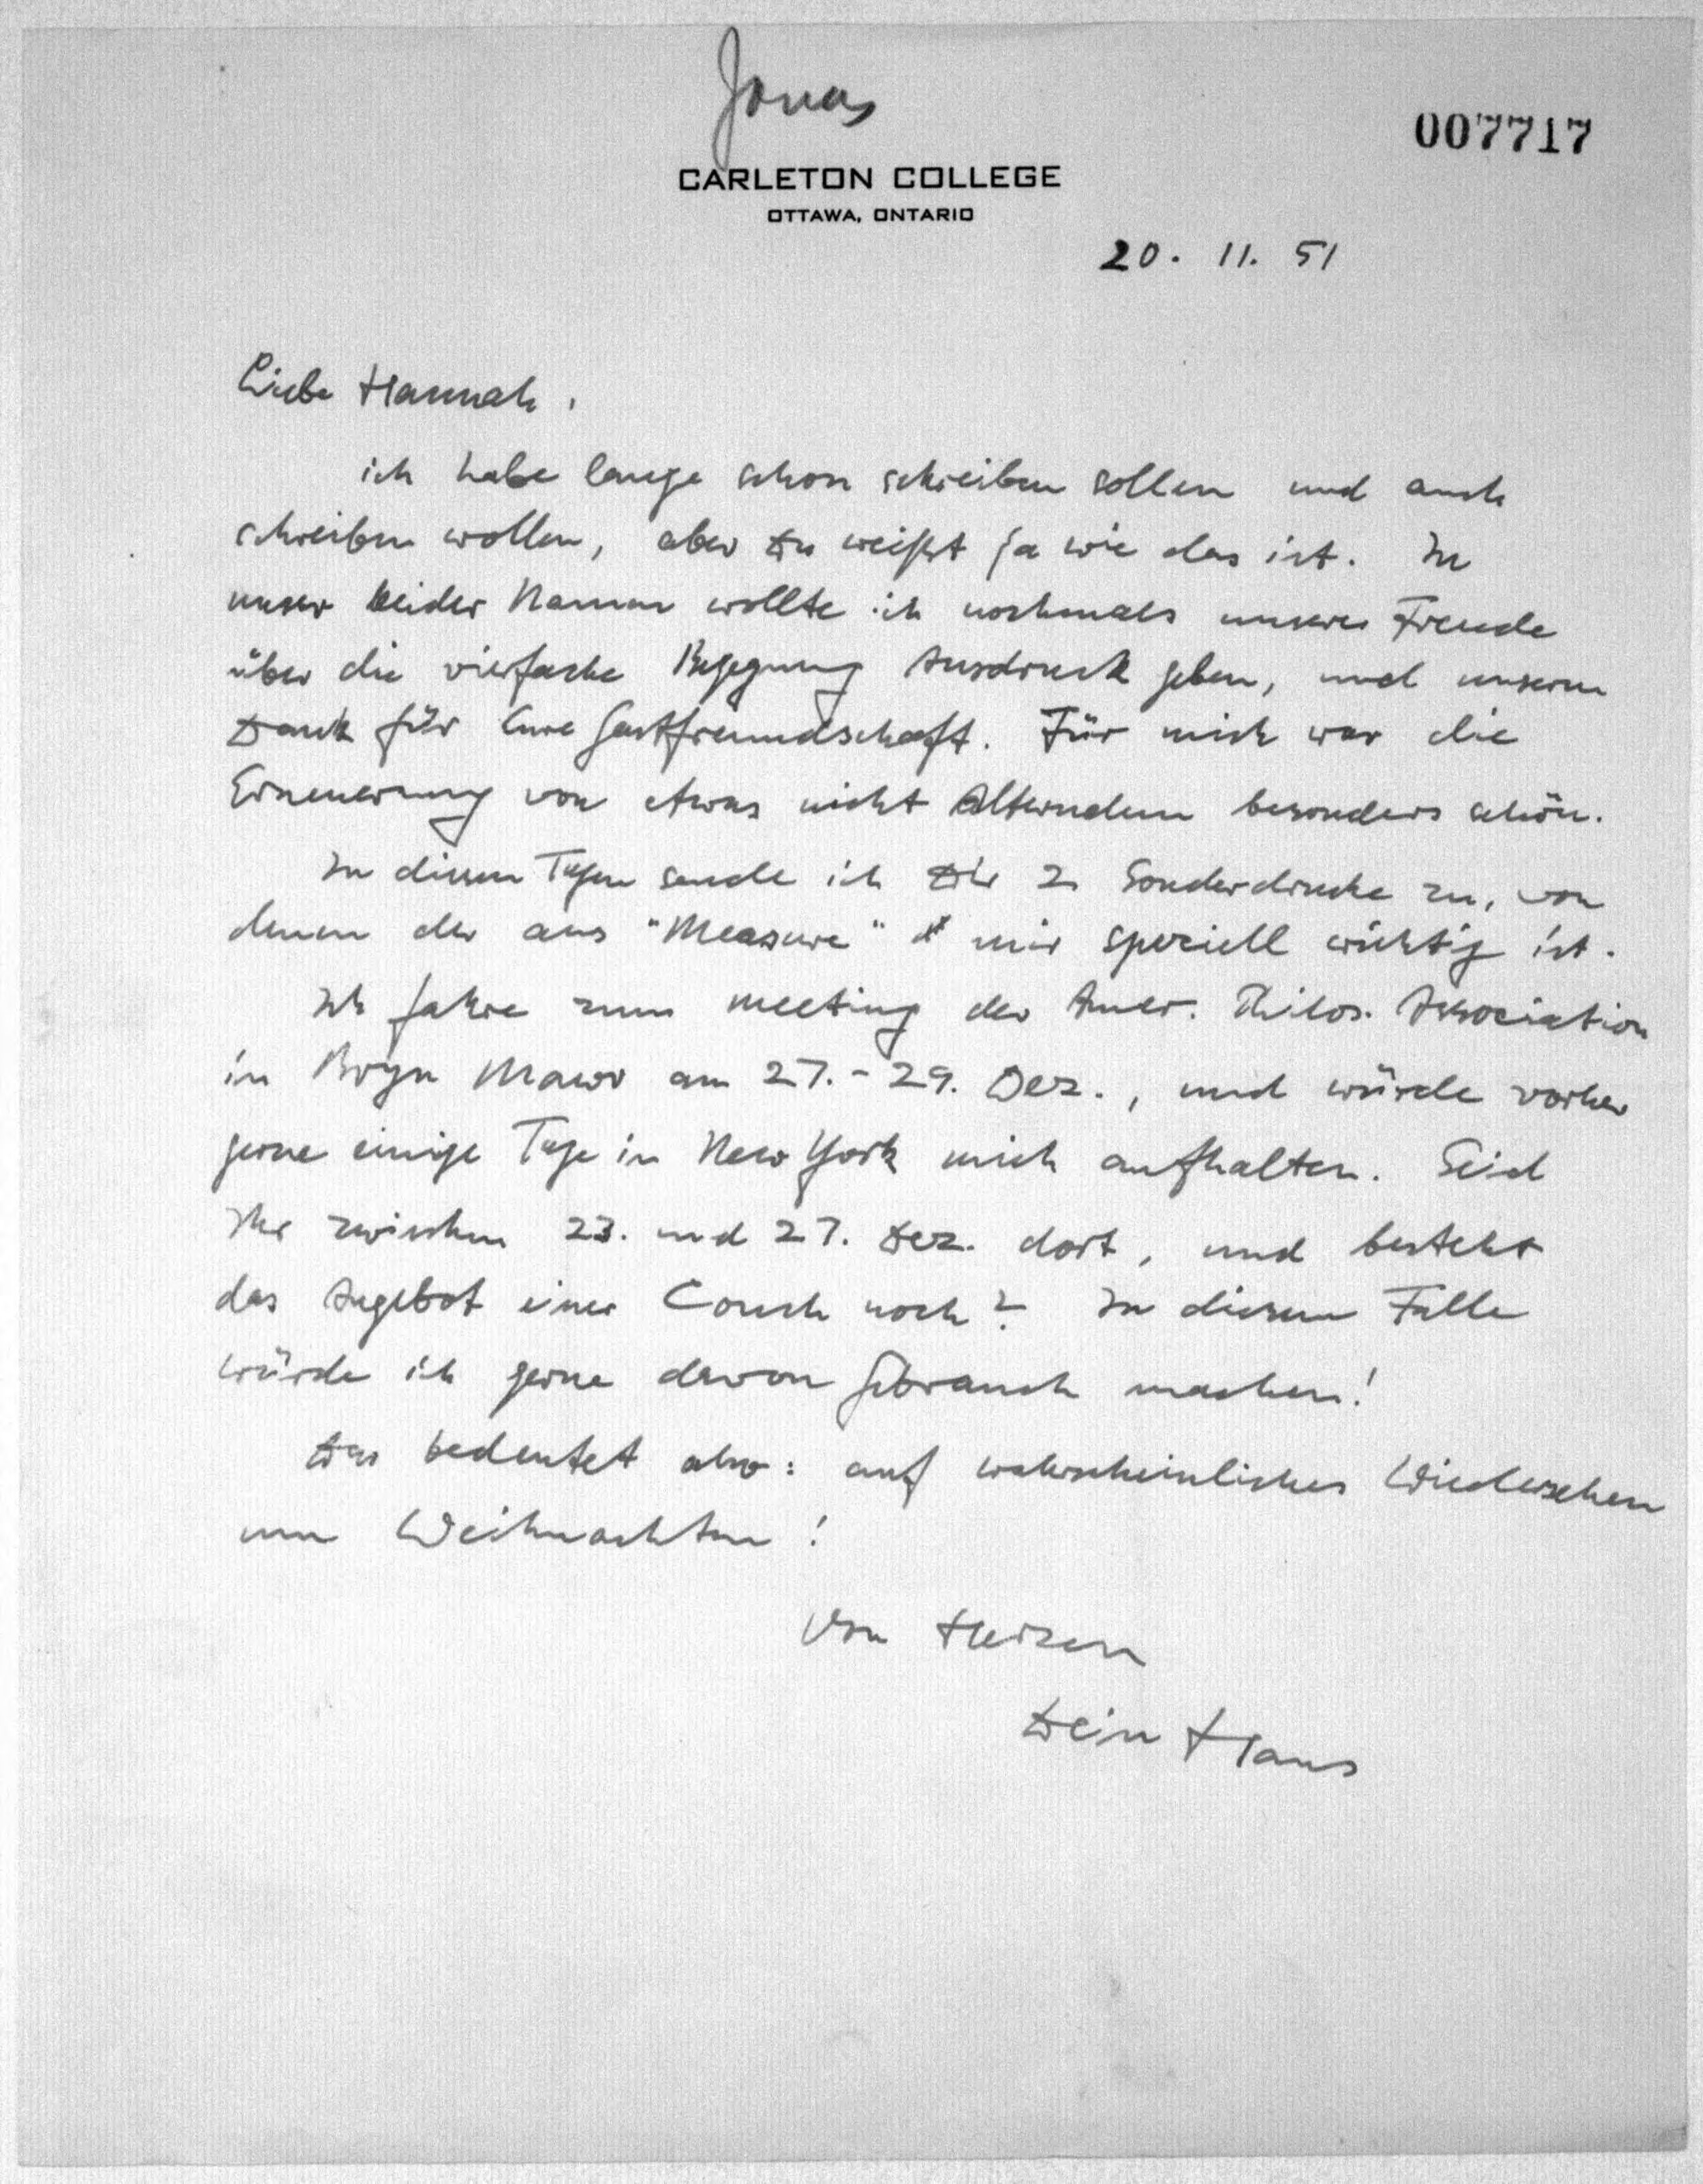 Jonas
007717
CARLETON COLLEGE
OTTAWA, ONTARIO
20. 11. 51
Liebe Hannah,
ich habe lange schon schreiben sollen und auch
schreiben wollen, aber Du weißt ja wie das ist. In
unser beider Namen wollte ich nochmals unserer Freude
über die vierfache Begegnung Ausdruck geben, und unserm
Dank für Eure Gastfreundschaft. Für mich war die
Erneuerung von etwas nicht Alterndem besonders schön.
In diesen Tagen sende ich Dir 2 Sonderdrucke zu, von
denen der aus "Measure" mir speziell wichtig ist.
Ich fahre zum meeting der Amer. Philos. Association
in Bryn Mawr am 27.-29. Dez., und würde vorher
gerne einige Tage in New York mich aufhalten. Seid
Ihr zwischen 23. und 27. Dez. dort, und besteht
das Angebot einer Couch noch? In diesem Falle
würde ich gerne davon Gebrauch machen!
Das bedeutet also: auf wahrscheinliches Wiedersehen
um Weihnachten!
Von Herzen
Dein Hans